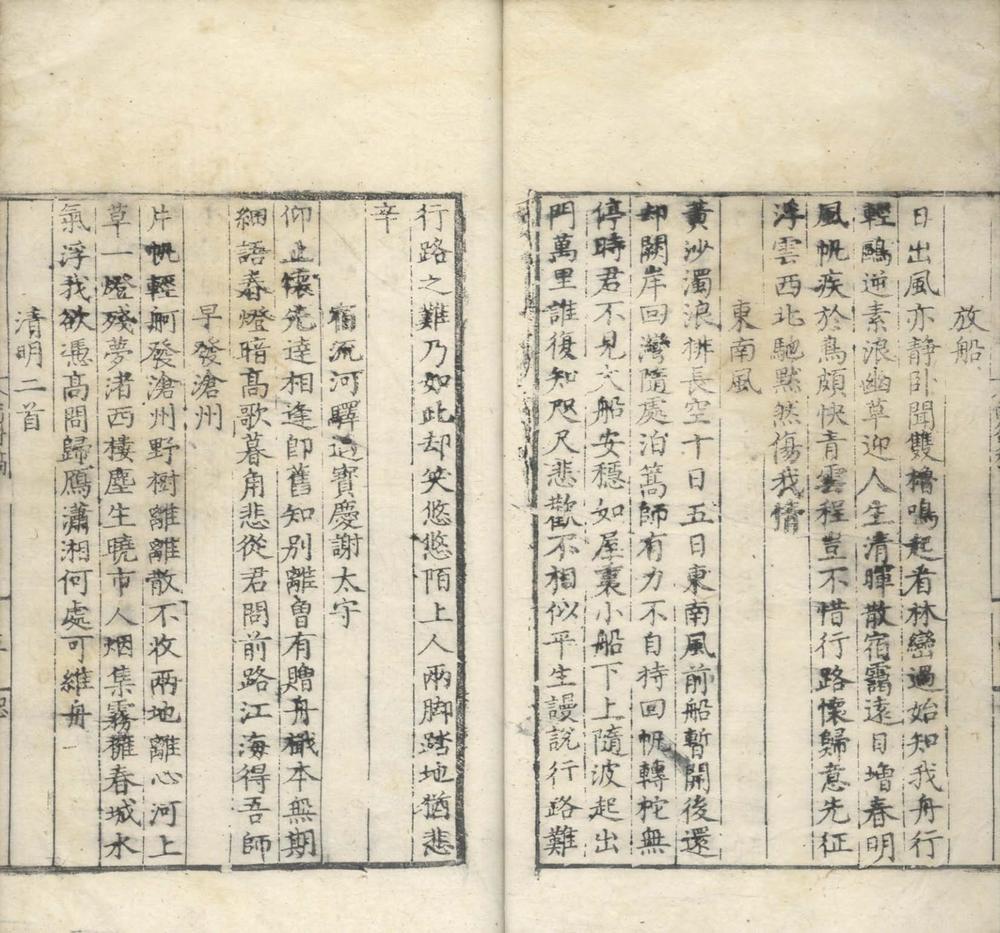 放船
日出風亦静卧聞雙櫓鳴起看林巒過始知我舟行
輕鷗逆素浪幽草迎人生清暉散宿靄遠目增春明
風帆疾於鳥頗快青雲程豈不惜行路懷歸意先征
浮雲西北馳黙然傷我情
東南風
黃沙濁浪耕長空十日五日東南風前船暫開後還
却闕岸回灣隨處泊篙師有力不自持回帆轉柁無
停時君不見大船安穩如屋裏小船下上隨波起出
門萬里誰復知咫尺悲歡不相似平生謾說行路難
行路之難乃如此却笑悠悠陌上人兩脚踏地猶悲
辛
宿流河驛迓寳慶謝太守
仰止懷先達相逢即舊知別離曽有贈舟檝本無期
細語春燈暗高歌暮角悲從君問前路江海得吾師
早發滄州
片帆輕舸發滄州野樹離離散不收兩地離心河上
草一燈殘夢渚西樓塵生曉市人烟集霧擁春城水
氣浮我欲憑高問歸鴈瀟湘何處可維舟
清明二首